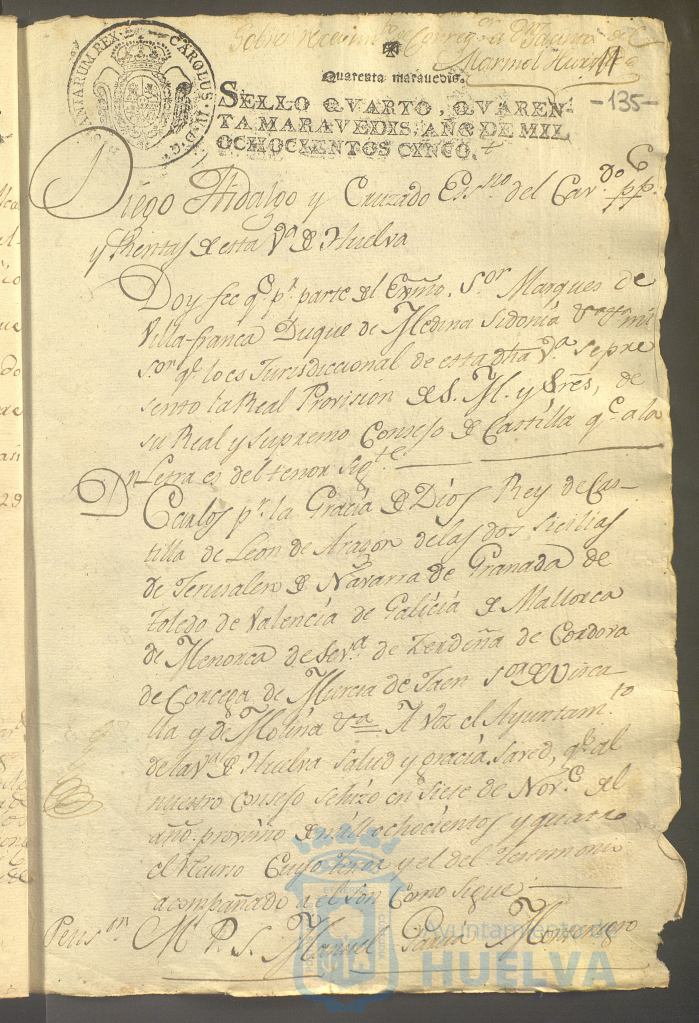 Sobre recevimto de Corregor a Dn Jacinto del
Marmol Huartes
11
-135-
CAROLUS IV D G
HISPANIARUM REX
Quarenta maravedis.
SELLO QVARTO, QVAREN-
TA MARAVEDIS, AÑO DE MIL
OCHOCIENTOS CINCO.
Diego Hidalgo y Cruzado Essno del Cavdo
y Rentas de esta Va de Huelva
Doy fee qe pr parte del Exmo. Sor Marques de
Villafranca Duque de Medina Sidonia &a mi
sor qe lo es Jurisdiccional de esta dha Va. se pre
sento la Real Provision de S. M. y Sres, de
su Real y supremo Consejo de Castilla qe a la
Letra es del tenor sigte
Dn Carlos pr. la Gracia de Dios Rey de Cas-
tilla de Leon de Aragon de las dos Sicilias
de Jerusalen de Navarra de Granada de
Toledo de Valencia de Galicia de Mallorca
de Menorca de Seva. de Zerdeña de Cordova
de Corcega de Murcia de Jaen Sor de Visca
lla y de Molina &a A Voz el Ayuntamto
de la Va de Huelva salud y gracia, saved, qe al
nuestro Consejo se hizo en siete de Nove del
año proximo de mil ochocientos y quatro
el Recurso Cuyo tenor y el del Testimonio
acompañado a el son Como sigue:
Petison M. P. S. Manuel Garcia Monrenegro
Ayuntamiento de
HUELVA